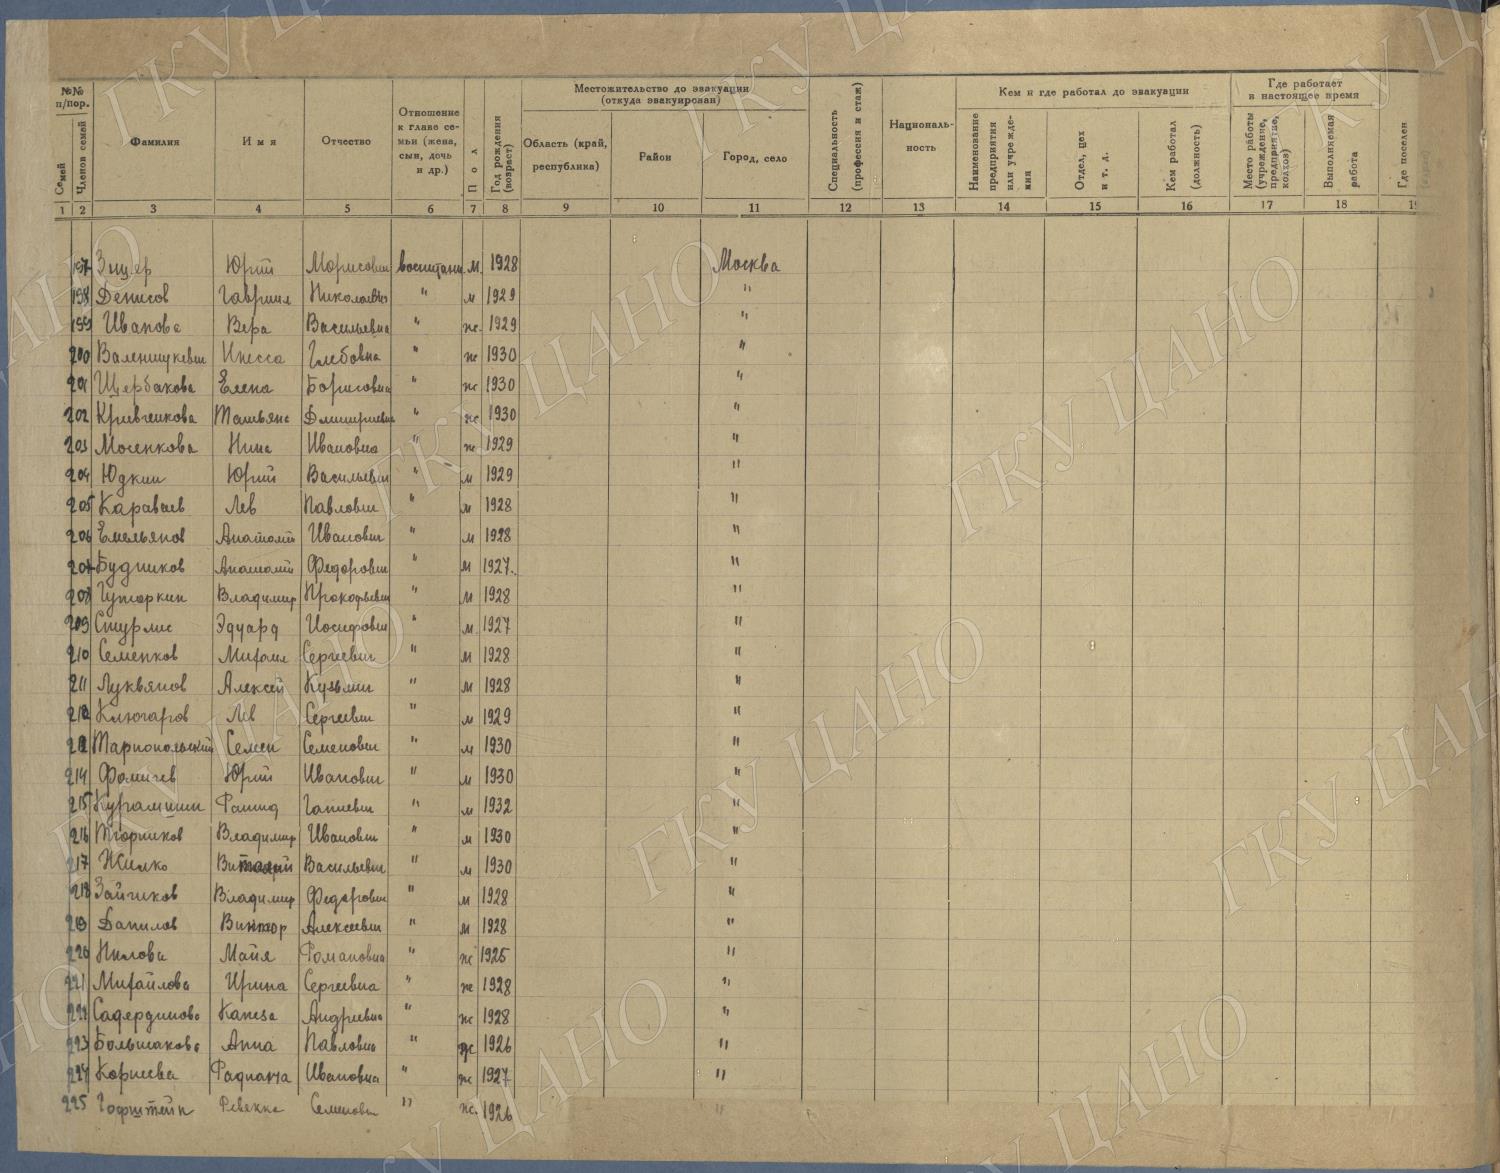 №№ п/пор.
Семей
Членов семей
Фамилия
Имя
Отчество
Отношение к главе семьи (жена, сын, дочь и др.)
Пол
Год рождения (возраст)
Местожительство до эвакуации (откуда эвакуирован)
Область (край, республика)
Район
Город, село
Специальность (профессия и стаж)
Националь-ность
Кем и где работал до эвакуации
Наименование предприятия или учрежде-ния
Отдел, цех и т. д.
Кем работал (должность)
Где работает в настоящее время
Место работы (учреждение, предприятие, колхоз)
Выполняемая работа
Где поселен
1 2 3 4 5 6 7 8 9 10 11 12 13 14 15 16 17 18
197 Юрий Морисович воспитан м. 1928 Москва
198 Денисов Гавриил Николаевич " м 1929 "
199 Иванова Вера Васильевна " ж. 1929 "
200 Инесса Глебовна " ж 1930 "
201 Щербакова Елена Борисовна " ж 1930 "
202 Кривченкова Татьяна Дмитриевна " ж 1930 "
203 Мосенкова Нина Ивановна " ж 1929 "
204 Юдкин Юрий Васильевич " м 1929 "
205 Караваев Лев Павлович " м 1928 "
206 Емельянов Анатолий Иванович " м 1928 "
207 Будников Анатолий Федорович " м 1927. "
208 Гуторкин Владимир Прокофьевич " м 1928 "
209 Эдуард Иосифович " м. 1927 "
210 Семенков Михаил Сергеевич " м 1928 "
211 Луквянов Алексей Кузьмич " м 1928 "
212 Ключаров Лев Сергеевич " м 1929 "
Тарнопольский Семен Семенович " м 1930 "
214 Фомичев Юрий Иванович " м 1930 "
215 Курамшин Рашид Ганиевич " м 1932 "
216 Владимир Иванович " м 1930 "
217 Жилко Виталий Васильевич " м 1930 "
218 Зайчиков Владимир Федорович " м 1928 "
219 Данилов Виктор Алексеевич " м 1928 "
220 Нилова Майя Романовна " ж 1925 "
221 Михайлова Ирина Сергеевна " ж 1928 "
222 Садердинова Андреевна " ж 1928 "
223 Большакова Анна Павловна " ж 1926 "
224 Корнеева Ивановна " ж 1927 "
225 Гофштейн Ревекка Семенов " ж. 1926 "
ГКУ ЦАНО